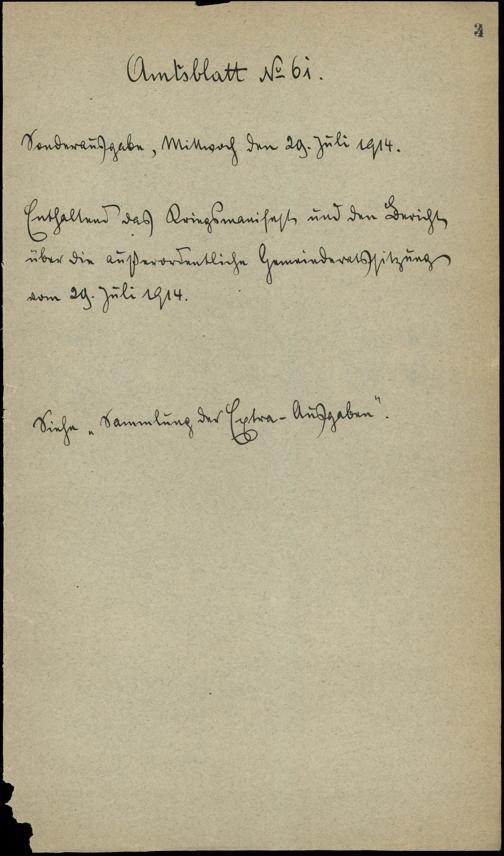 3
Amtsblatt № 61.
Sonderausgabe, Mittwoch den 29. Juli 1914.
Enthaltend das Kriegsmanifest und den Bericht
über die außerordentliche Gemeinderatssitzung
vom 29. Juli 1914.
Siehe „Sammlung der Extra-Ausgaben".